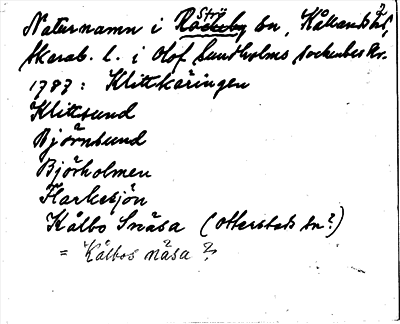 Naturnamn i Strö Råckeby sn, Kållands hd,
Skarab. l. i Olof Sundholms sockenbeskr.
1787: Klittkäringen
Klittsund
Björnsund
Björholmen
Harkesjön
Kålbo Snäsa (Otterstads sn?)
= Kålbos näsa?